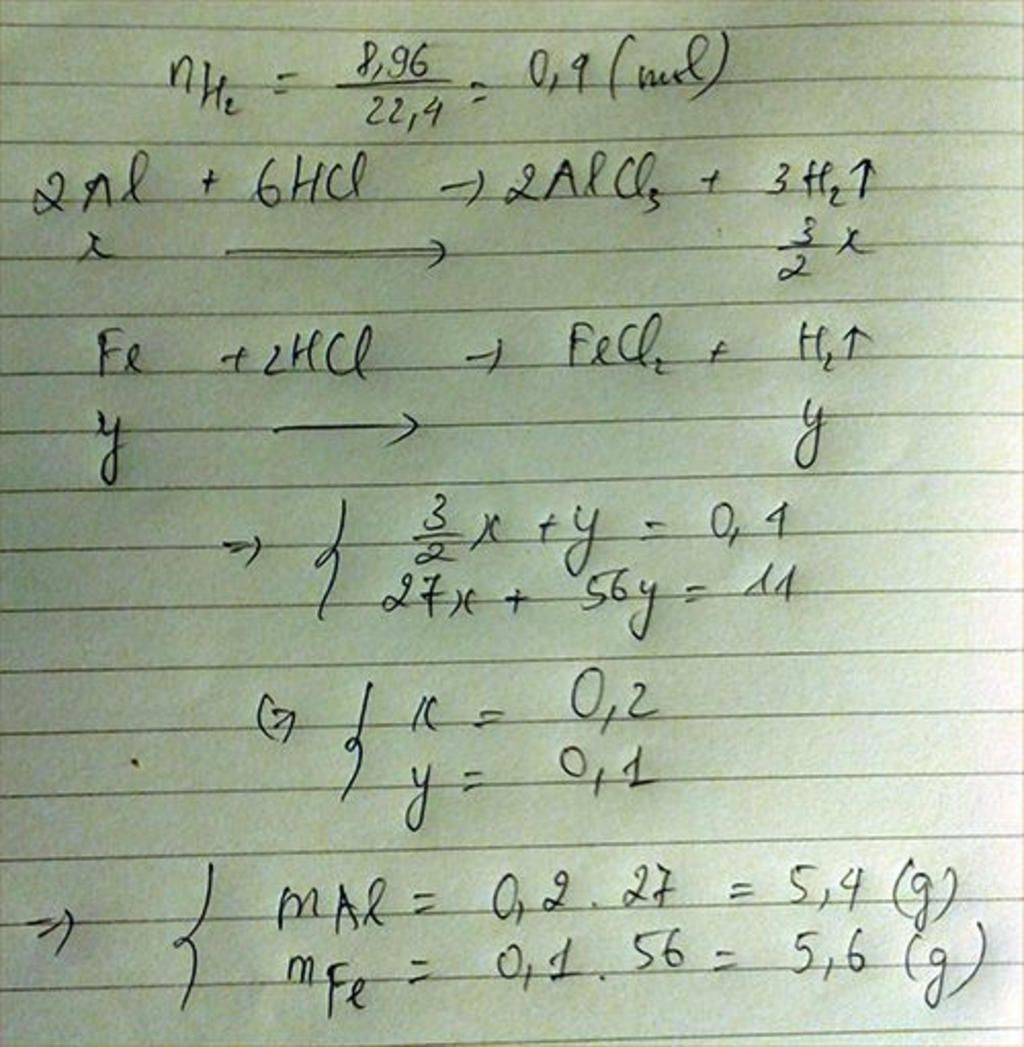 nH₂ = 8,96/22,4 = 0,4 (mol)
2Al + 6HCl → 2AlCl₃ + 3H₂↑
x ⟶ 3/2 x
Fe + 2HCl → FeCl₂ + H₂↑
y ⟶ y
=> { 3/2 x + y = 0,4
27x + 56y = 11
(=> { x = 0,2
y = 0,1
=> { mAl = 0,2 . 27 = 5,4 (g)
mFe = 0,1 . 56 = 5,6 (g)